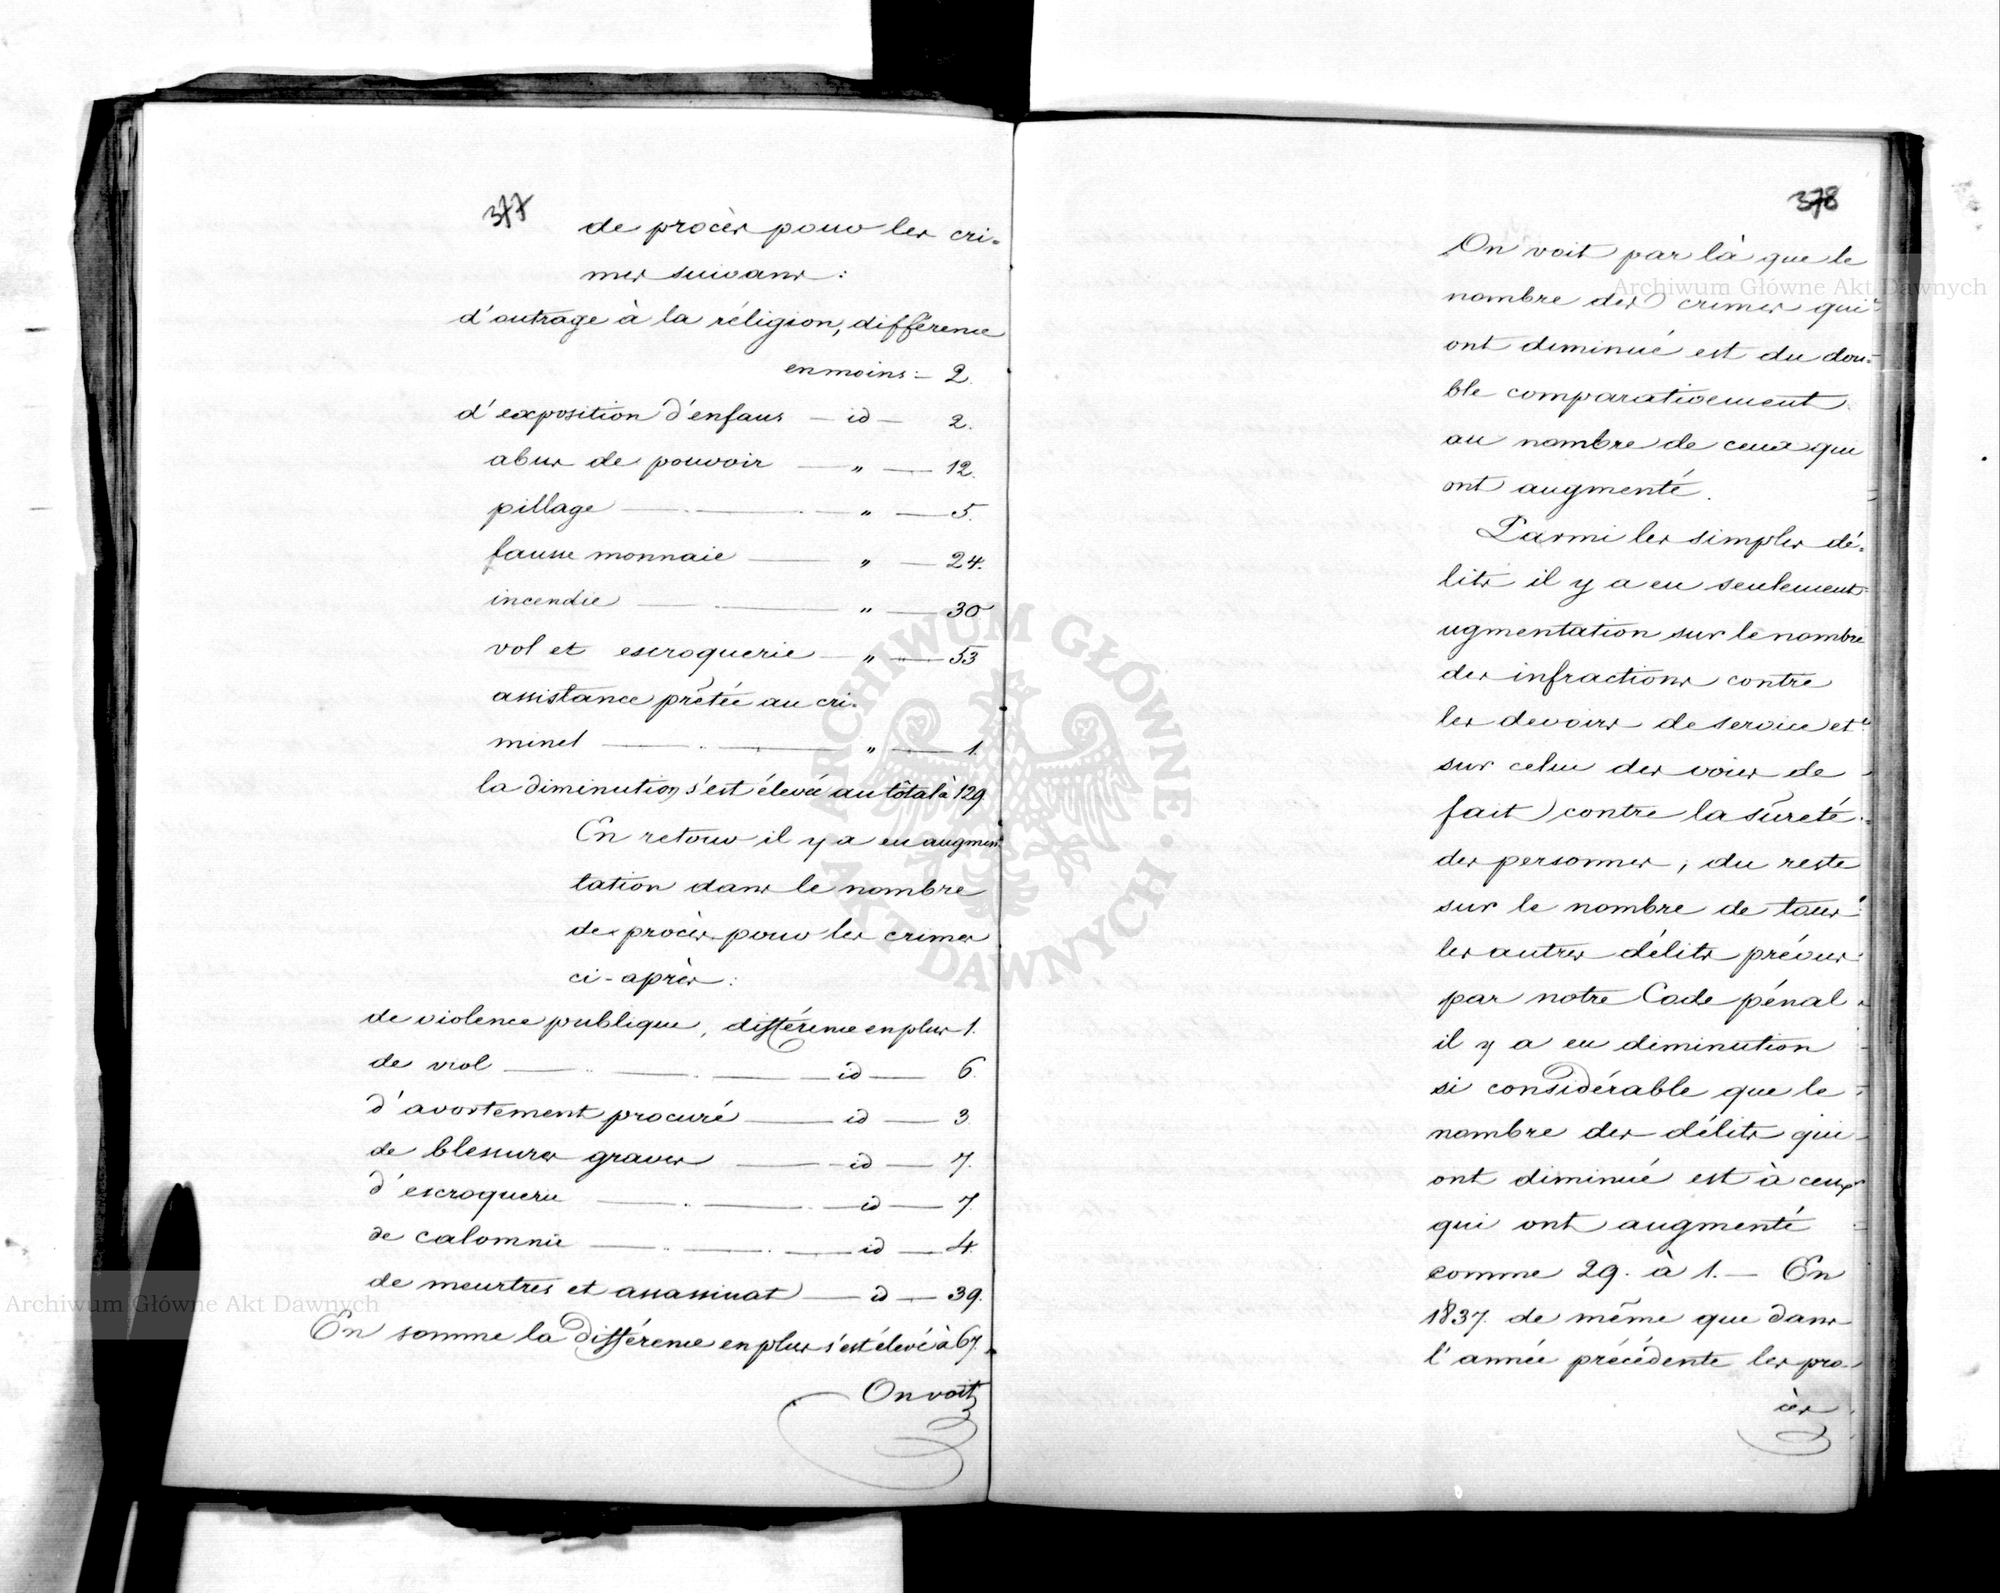 377
de procès pour les cri-
mes suivans :
d'outrage à la réligion, différence
en moins :– 2.
d'exposition d'enfans — id — 2.
abus de pouvoir — „ — 12.
pillage — „ — 5.
fausse monnaie — „ — 24.
incendie — „ — 30
vol et escroquerie — „ — 53
assistance prêtée au cri-
minel — „ — 1.
la diminution s'est élevée au total à 129.
En retour il y a eu augmen-
tation dans le nombre
de procès pour les crimes
ci-après :
de violence publique, différence en plus 1.
de viol — id — 6.
d'avortement procuré — id — 3.
de blessures graves — id — 7.
d'escroquerie — id — 7.
de calomnie — id — 4.
de meurtres et assassinat — id — 39.
En somme la différence en plus s'est élevé à 67.
On voit
378
On voit par là que le
nombre des crimes qui
ont diminué est du dou-
ble comparativement
au nombre de ceux qui
ont augmenté.
Parmi les simples dé-
lits il y a eu seulement
ugmentation sur le nombre
des infractions contre
les devoirs de service et
sur celui des voies de
fait contre la sûreté
des personnes, du reste
sur le nombre de tous
les autres délits prévus
par notre Code pénal
il y a eu diminution
si considérable que le
nombre des délits qui
ont diminué est à ceux
qui ont augmenté
comme 29. à 1. — En
1837. de même que dans
l'année précédente les pro-
cès
Archiwum Główne Akt Dawnych
Archiwum Główne Akt Dawnych
ARCHIWUM GŁÓWNE AKT DAWNYCH